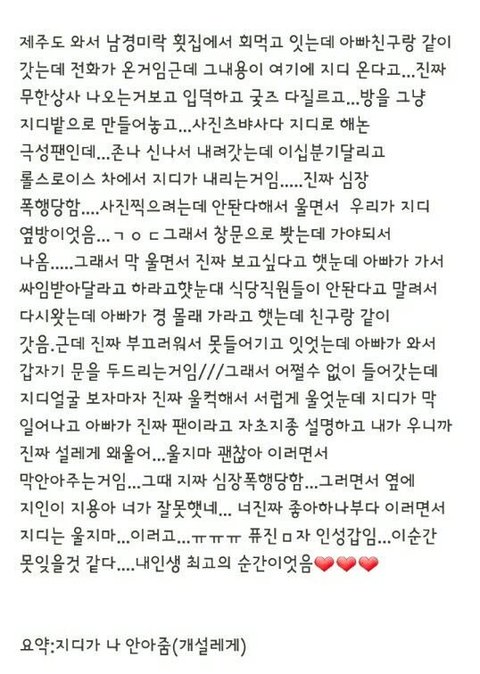 제주도 와서 남경미락 횟집에서 회먹고 잇는데 아빠친구랑 같이
갓는데 전화가 온거임근데 그내용이 여기에 지디 온다고...진짜
무한상사 나오는거보고 입덕하고 굿즈 다질르고...방을 그냥
지디밭으로 만들어놓고...사진츠뱌사다 지디로 해논
극성팬인데...존나 신나서 내려갓는데 이십분기달리고
롤스로이스 차에서 지디가 내리는거임.....진짜 심장
폭행당함....사진찍으려는데 안돤다해서 울면서 우리가 지디
옆방이엇음...ㄱㅇㄷ그래서 창문으로 봣는데 가야되서
나옴.....그래서 막 울면서 진짜 보고싶다고 햇눈데 아빠가 가서
싸임받아달라고 하라고햣눈대 식당직원들이 안돤다고 말려서
다시왓는데 아빠가 경 몰래 가라고 햇는데 친구랑 같이
갓음.근데 진짜 부끄러워서 못들어기고 잇엇는데 아빠가 와서
갑자기 문을 두드리는거임///그래서 어쩔수 없이 들어갓는데
지디얼굴 보자마자 진짜 울컥해서 서럽게 울엇눈데 지디가 막
일어나고 아빠가 진짜 팬이라고 자초지종 설명하고 내가 우니까
진짜 설레게 왜울어...울지마 괜찮아 이러면서
막안아주는거임...그때 지짜 심장폭행당함...그러면서 옆에
지인이 지용아 너가 잘못햇네... 너진짜 좋아하나부다 이러면서
지디는 울지마...이러고...ㅠㅠㅠ 퓨진ㅁ자 인성갑임...이순간
못잊을것 같다....내인생 최고의 순간이엇음❤❤❤
요약:지디가 나 안아줌(개설레게)